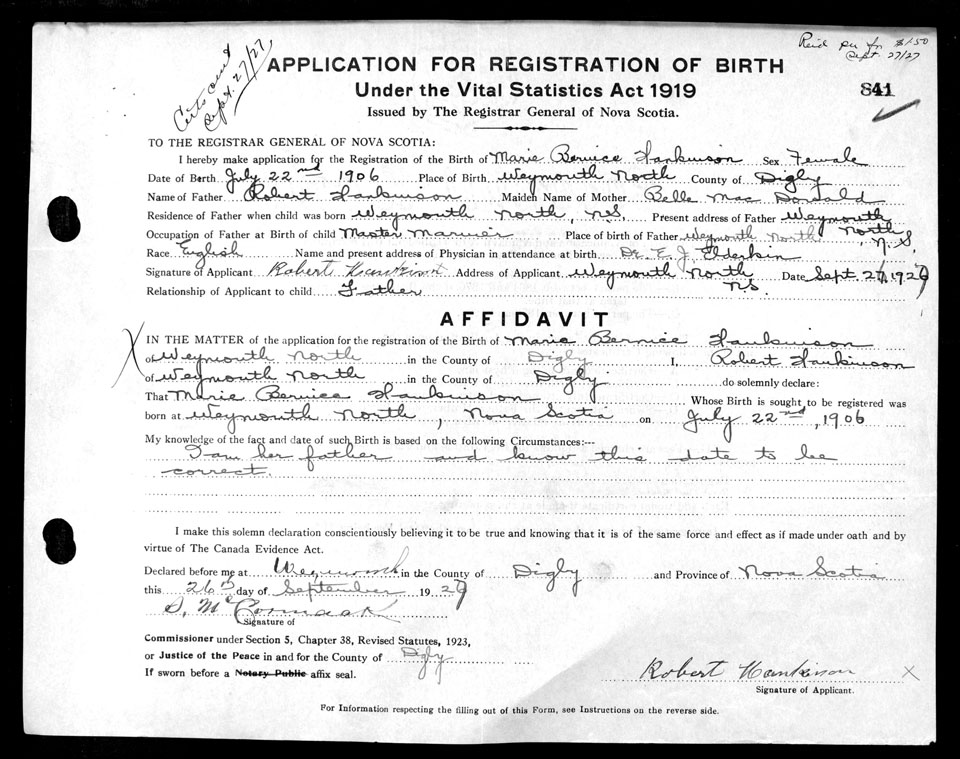 Certs out
Sept. 27/27
Reid pu for $1.50
Sept. 27/27
APPLICATION FOR REGISTRATION OF BIRTH
Under the Vital Statistics Act 1919
841
Issued by The Registrar General of Nova Scotia.
TO THE REGISTRAR GENERAL OF NOVA SCOTIA:
I hereby make application for the Registration of the Birth of Marie Bernice Hankinson Sex Female
Date of Birth July 22nd 1906 Place of Birth Weymouth North County of Digby
Name of Father Robert Hankinson Maiden Name of Mother Belle Mac Donald
Residence of Father when child was born Weymouth North, N.S. Present address of Father Weymouth North, N.S.
Occupation of Father at Birth of child Master Mariner Place of birth of Father Weymouth North
Race English Name and present address of Physician in attendance at birth Dr. E. J. Elderkin
Signature of Applicant Robert Hankinson Address of Applicant Weymouth North N.S. Date Sept. 1927
Relationship of Applicant to child Father
AFFIDAVIT
IN THE MATTER of the application for the registration of the Birth of Marie Bernice Hankinson
of Weymouth North in the County of Digby I, Robert Hankinson
of Weymouth North in the County of Digby do solemnly declare:
That Marie Bernice Hankinson Whose Birth is sought to be registered was
born at Weymouth North, Nova Scotia on July 22nd, 1906
My knowledge of the fact and date of such Birth is based on the following Circumstances:---
I am her father and know this date to be
correct.
I make this solemn declaration conscientiously believing it to be true and knowing that it is of the same force and effect as if made under oath and by
virtue of The Canada Evidence Act.
Declared before me at Weymouth in the County of Digby and Province of Nova Scotia
this 26th day of September 1927
S. McCormack
Signature of
Commissioner under Section 5, Chapter 38, Revised Statutes, 1923,
or Justice of the Peace in and for the County of Digby
If sworn before a Notary Public affix seal.
Robert Hankinson X
Signature of Applicant.
For Information respecting the filling out of this Form, see Instructions on the reverse side.